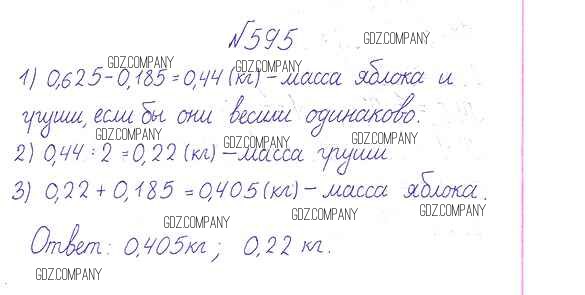 №595
GDZ.COMPANY
GDZ.COMPANY GDZ.COMPANY
1) 0,625-0,185=0,44 (кг) - масса яблока и
груши, если бы они весили одинаково.
GDZ.COMPANY GDZ.COMPANY GDZ.COMPANY
2) 0,44 : 2 = 0,22 (кг) - масса груши
3) 0,22 + 0,185 = 0,405 (кг) - масса яблока.
GDZ.COMPANY GDZ.COMPANY GDZ.COMPANY
Ответ: 0,405 кг; 0,22 кг.
GDZ.COMPANY